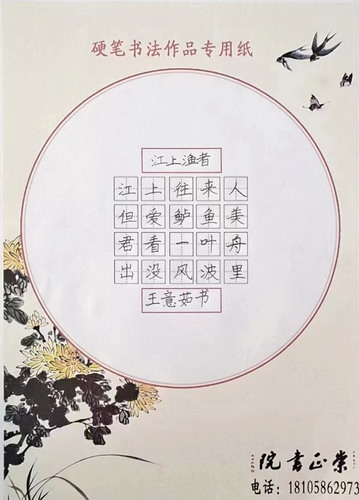 硬笔书法作品专用纸
江上渔者
江上往来人
但爱鲈鱼美
君看一叶舟
出没风波里
王意茹书
崇正书院
电话：18105862973